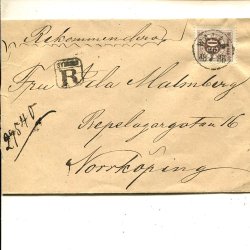 Rekommenderas
R
Fru Lila Malmberg
Repslagaregatan 16
Norrköping
29840